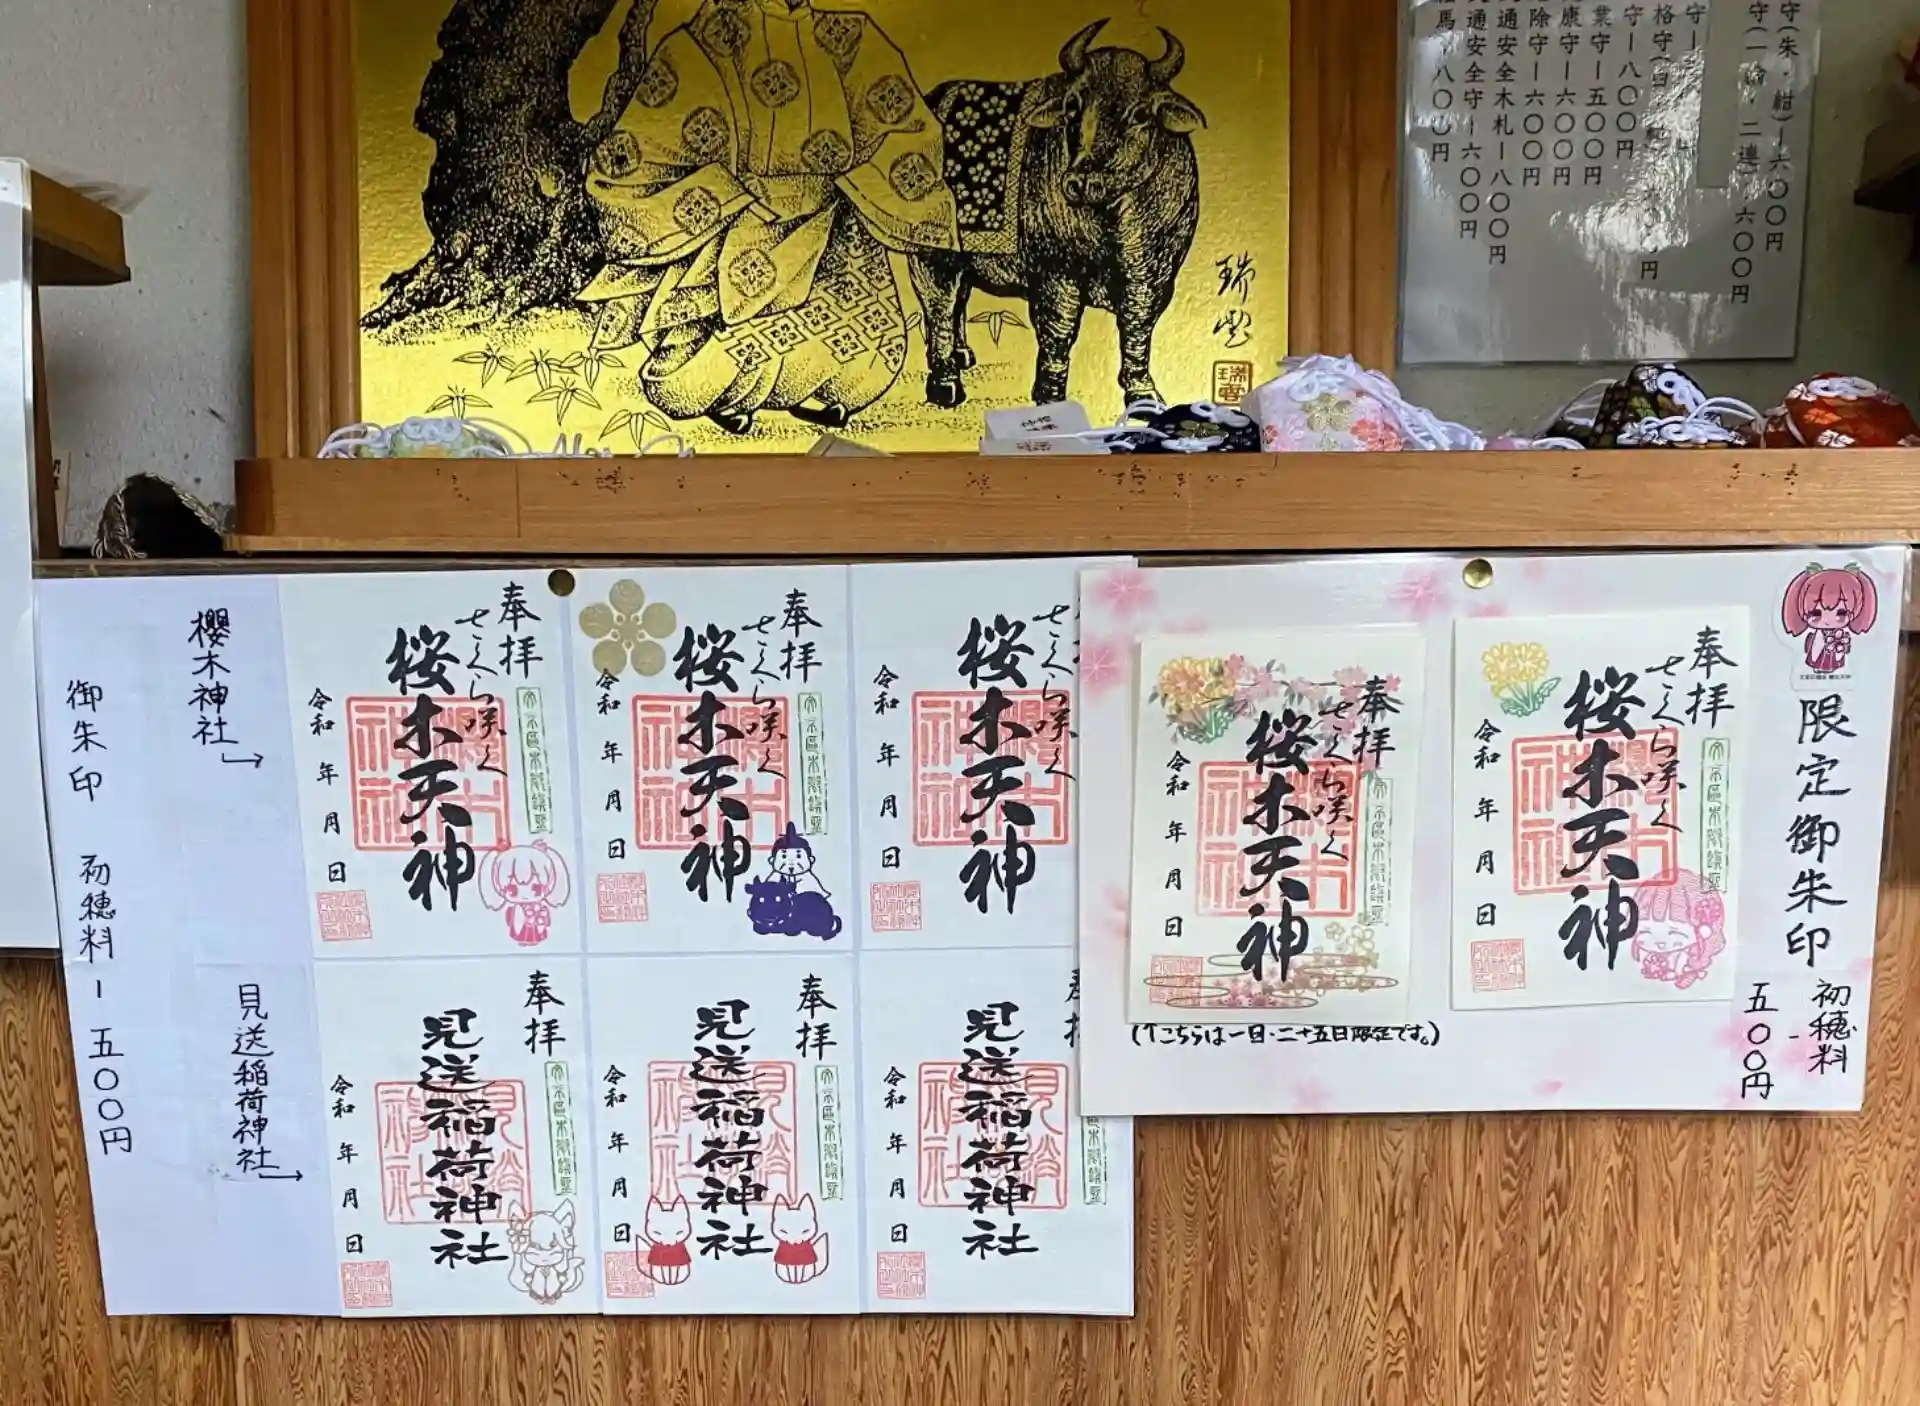 守(朱・紺)ー六〇〇円
守(一輪・二連)六〇〇円
守ー
格守(白
円
守ー八〇〇円
業守ー五〇〇円
康守ー六〇〇円
除守ー六〇〇円
通安全木札ー八〇〇円
通安全守ー六〇〇円
馬ー八〇〇円
瑞雲
櫻木神社
御朱印 初穂料ー五〇〇円
見送稲荷神社
奉拝
さくら咲く
桜木天神
令和 年 月 日
奉拝
さくら咲く
桜木天神
令和 年 月 日
さくら咲く
桜木天神
令和 年 月 日
奉拝
見送稲荷神社
令和 年 月 日
奉拝
見送稲荷神社
令和 年 月 日
見送稲荷神社
令和 年 月 日
限定御朱印
初穂料ー
五〇〇円
奉拝
さくら咲く
桜木天神
令和 年 月 日
奉拝
さくら咲く
桜木天神
令和 年 月 日
(↑こちらは一日・二十五日限定です。)